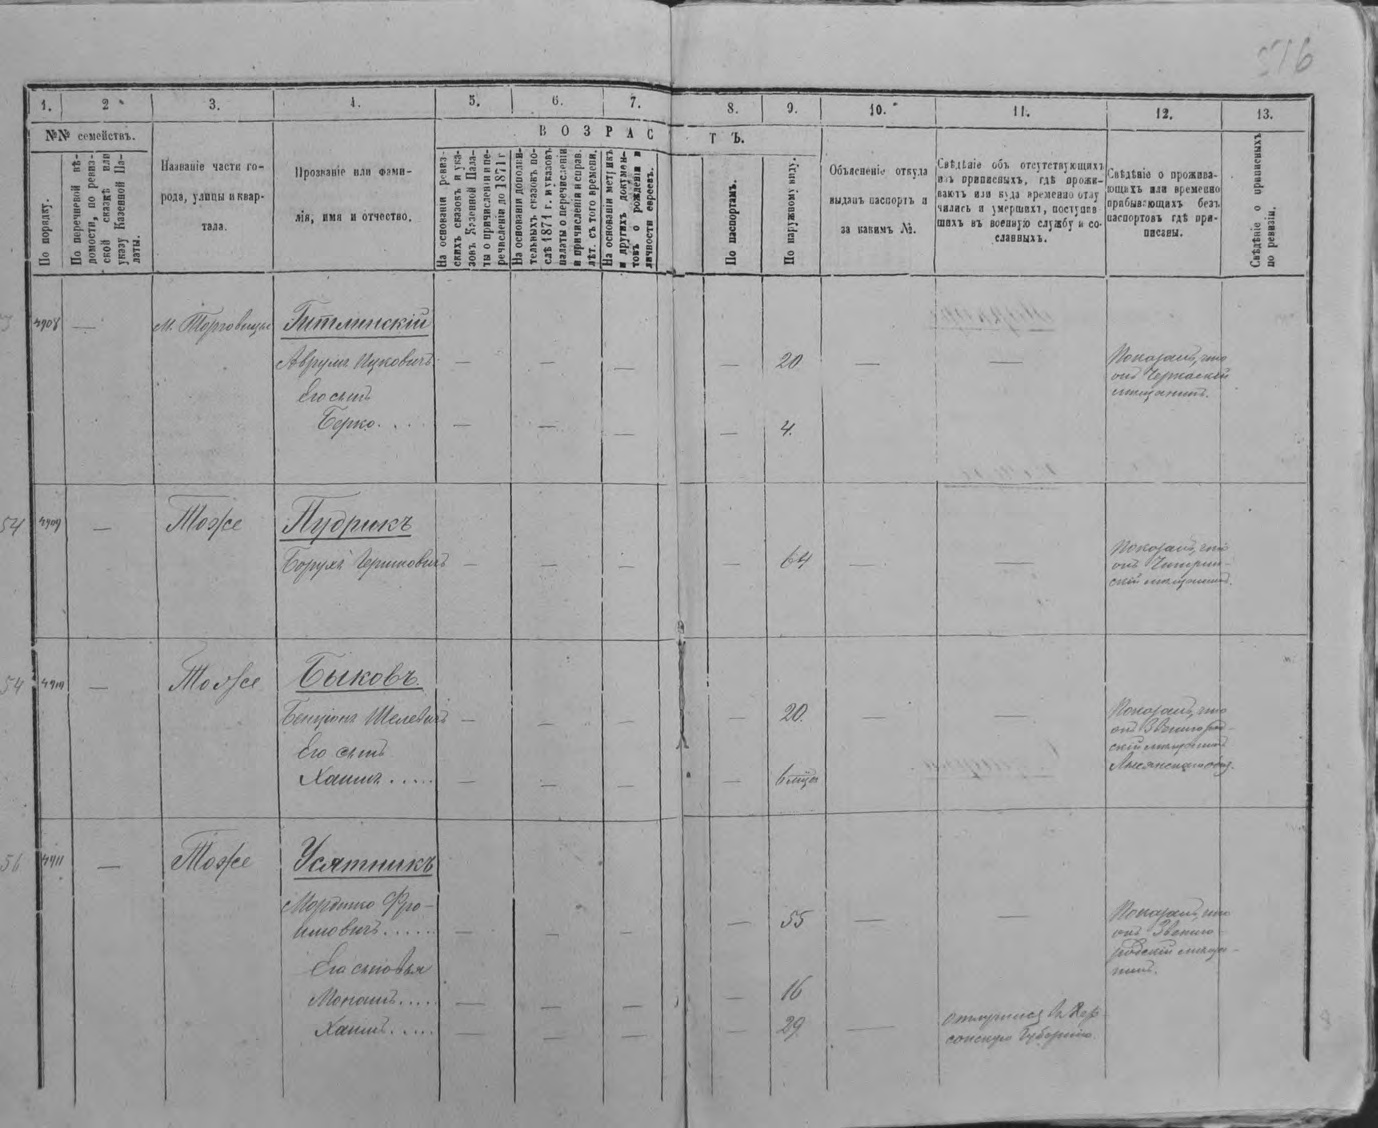 576
1. 2. 3. 4. 5. 6. 7. 8. 9. 10. 11. 12. 13.
№№ семействъ.
ВОЗРАСТЪ.
По порядку.
По перечневой вѣ-
домости, по ревиз-
ской сказкѣ или
указу Казенной Па-
латы.
Названіе части го-
рода, улицы и квар-
тала.
Прозваніе или фами-
лія, имя и отчество.
На основаніи ревиз-
скихъ сказокъ и ука-
зовъ Казенной Пала-
ты о причисленіи и пе-
речисленіи до 1871 г
На основаніи дополни-
тельныхъ сказокъ по-
слѣ 1871 г. и указовъ
палаты о перечисленіи
и причисленіи и справ.
лѣт. съ того времени.
На основаніи метрикъ
и другихъ докумен-
товъ о рожденіи и
личности евреевъ.
По паспортамъ.
По наружному виду.
Объясненіе откуда
выданъ паспортъ и
за какимъ №.
Свѣдѣніе объ отсутствующихъ
изъ приписныхъ, гдѣ прожи-
ваютъ или куда временно отлу
чились и умершихъ, поступив-
шихъ въ военную службу и со-
сланныхъ.
Свѣдѣніе о прожива-
ющихъ или временно
прибывающихъ безъ
паспортовъ гдѣ при-
писаны.
Свѣдѣніе о приписныхъ
по ревизіи.
4908 — м. Торговица Гитлинскій
Аврумъ Ицковичъ — — — — 20 — — Показалъ, что
онъ Черкаскій
мѣщанинъ.
Его сынъ
Берко.... — — — — 4.
54 4909 — Тоже Пудрикъ
Борухъ Гершковичъ — — — — 64 — — Показалъ, что
онъ Чигрин-
скій мѣщанинъ.
54 4910 — Тоже Быковъ.
Бенціонъ Шелевичъ — — — — 20. — — Показалъ, что
онъ Звенигород-
скій мѣщанинъ
Его сынъ
Хаимъ..... — — — — 6 мцъ
56 4911 — Тоже Усятникъ
Мордко Фро-
имовичъ...... — — — — 55 — — Показалъ, что
онъ Звениго-
родскій мѣща-
нинъ.
Его сыновья
Монашъ.... — — — — 16
Хаимъ..... — — — — 29. — отлучился въ Хер-
сонскую Губернію.